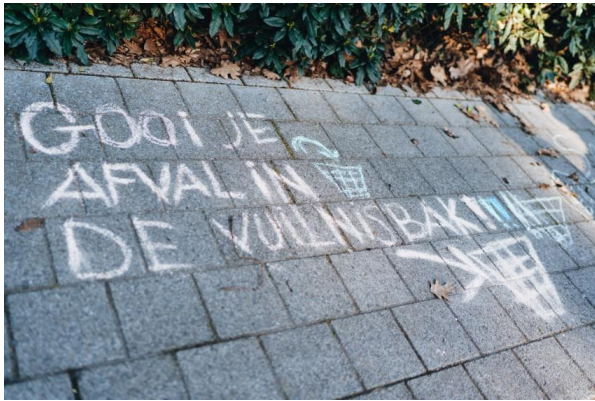 GOOI JE
AFVAL IN
DE VUILNISBAK!!!!